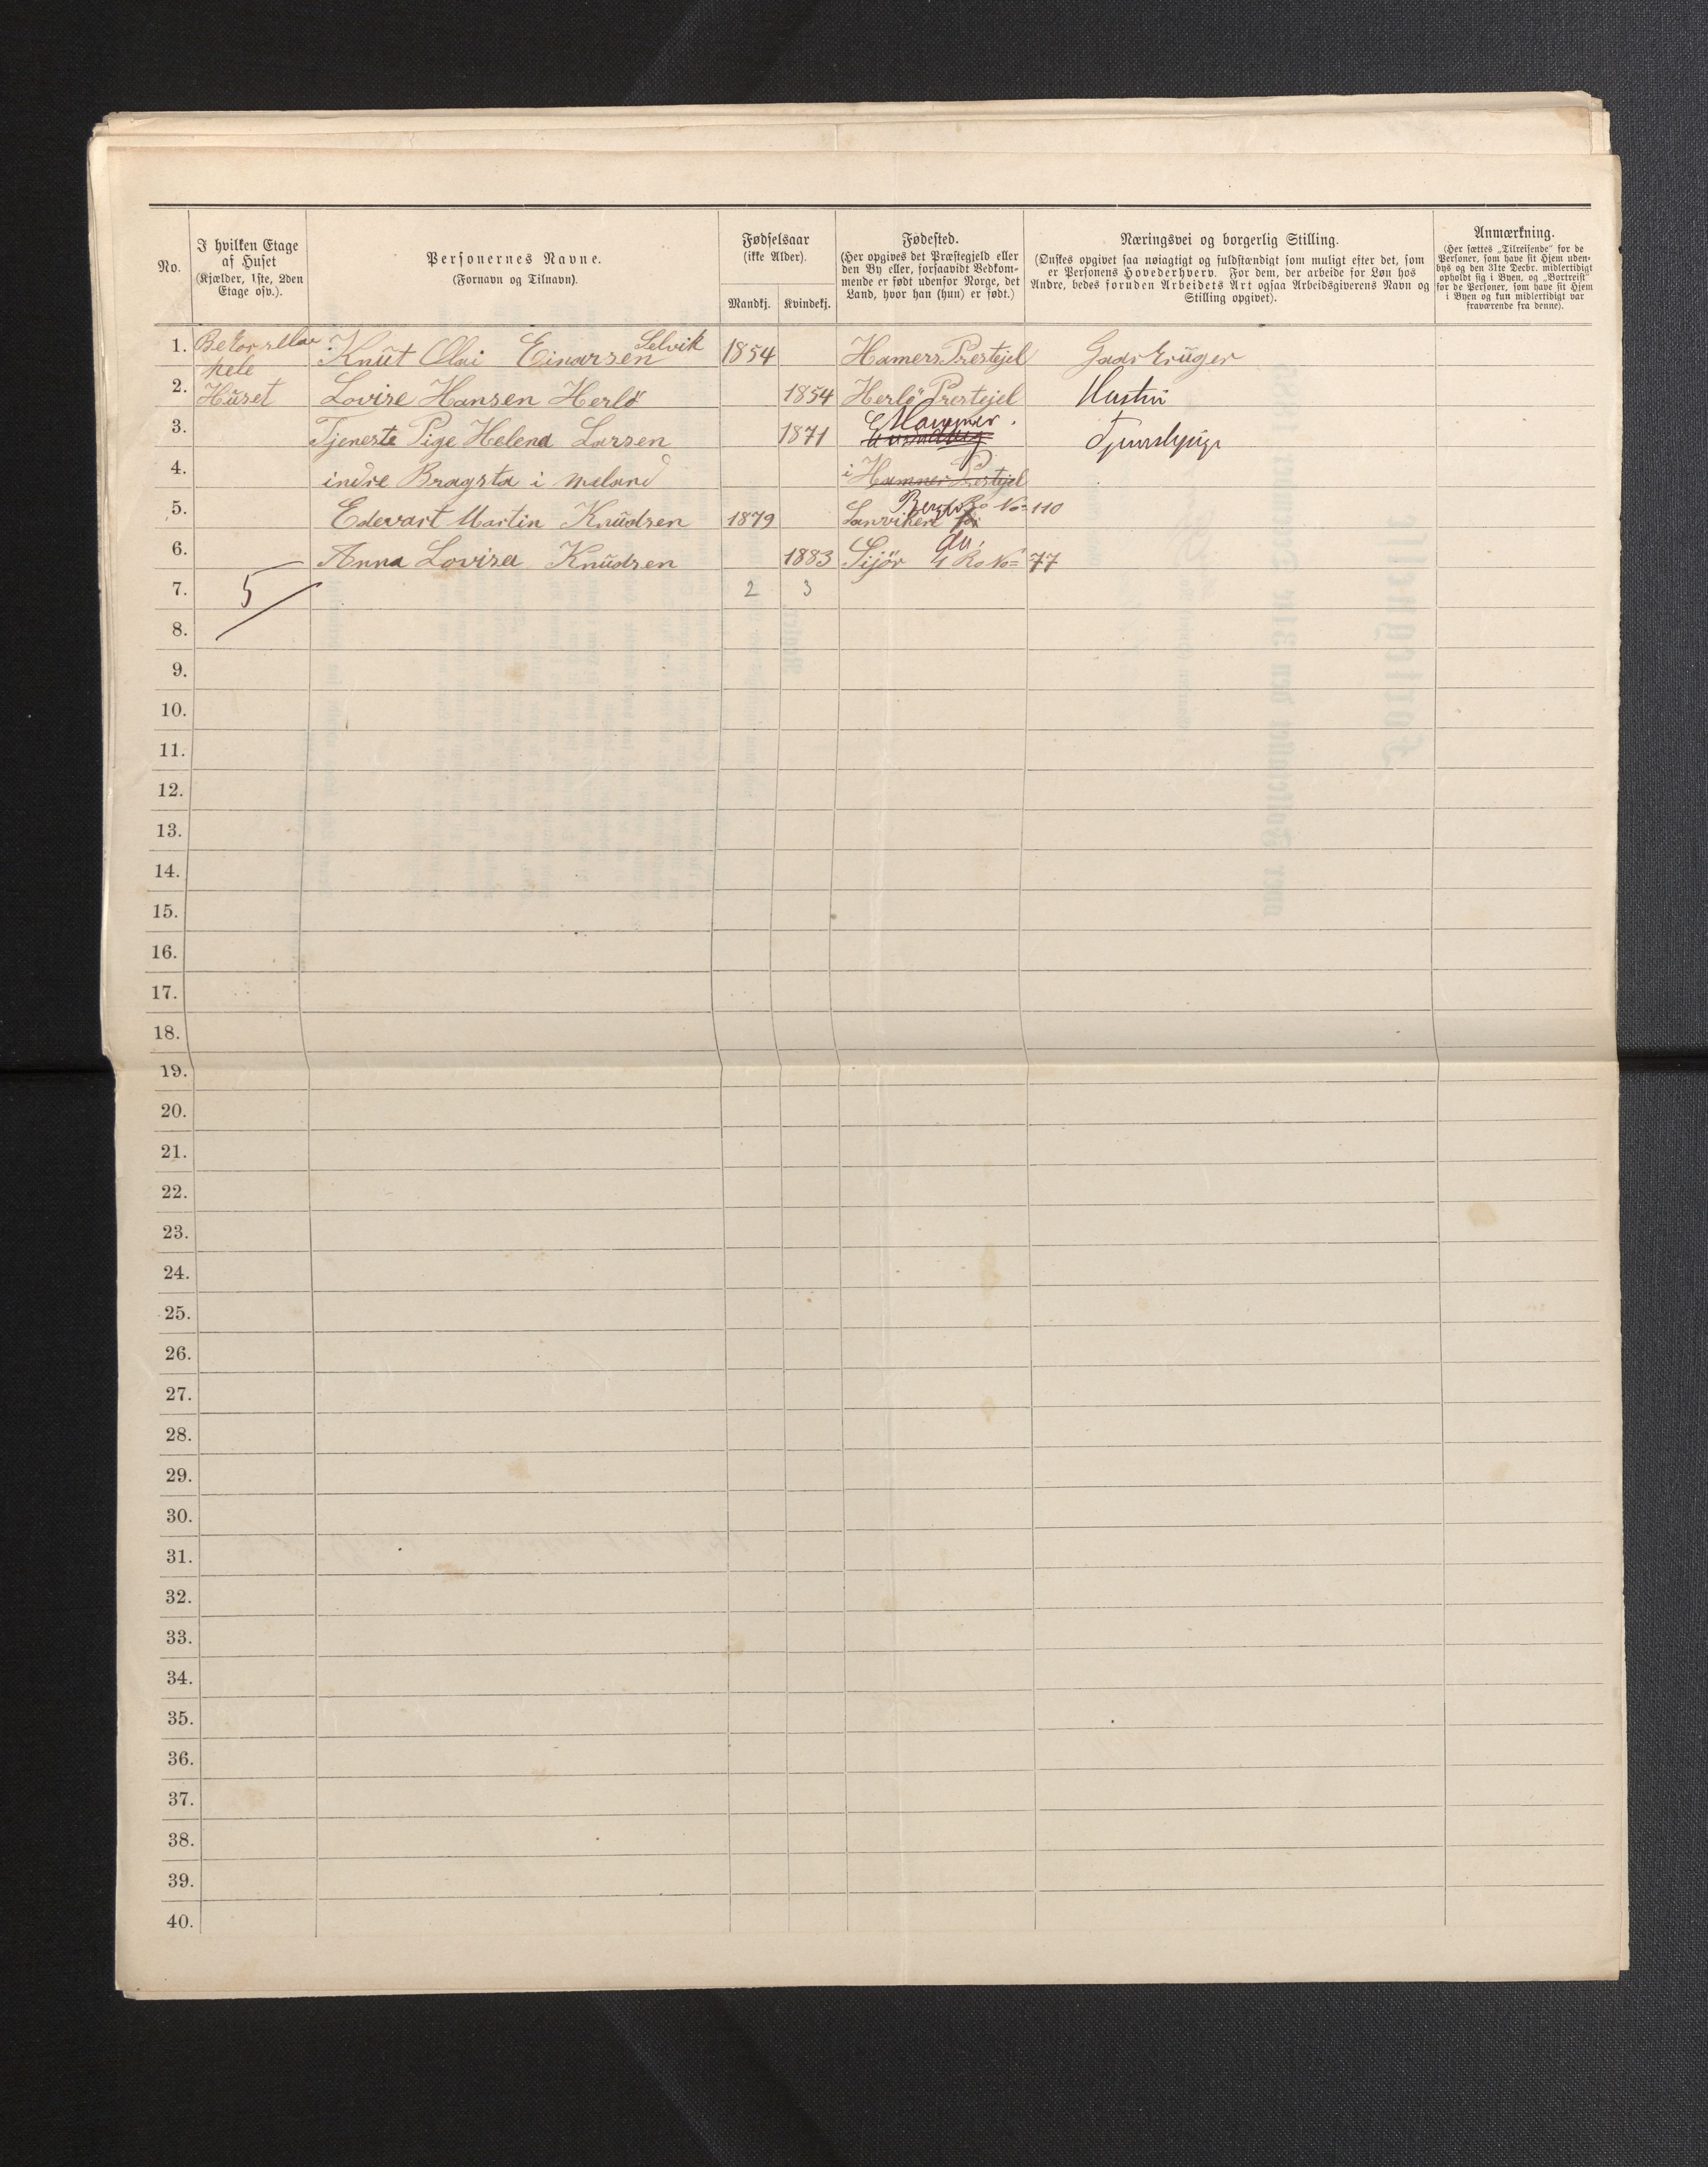 No.
I hvilken Etage
af Huset
(Kjælder, 1ste, 2den
Etage osv.).
Personernes Navne.
(Fornavn og Tilnavn).
Fødselsaar
(ikke Alder).
Mandkj. Kvindekj.
Fødested.
(Her opgives det Præstegjeld eller
den By eller, forsaavidt Vedkom-
mende er født udenfor Norge, det
Land, hvor han (hun) er født.)
Næringsvei og borgerlig Stilling.
(Ønskes opgivet saa nøiagtigt og fuldstændigt som muligt efter det, som
er Personens Hovederhverv. For dem, der arbeide for Løn hos
Andre, bedes foruden Arbeidets Art ogsaa Arbeidsgiverens Navn og
Stilling opgivet).
Anmærkning.
(Her sættes „Tilreisende" for de
Personer, som have sit Hjem uden-
bys og den 31te Decbr. midlertidigt
opholdt sig i Byen, og „Bortreist"
for de Personer, som have sit Hjem
i Byen og kun midlertidigt var
fraværende fra denne).
Selvik
1. Knut Olai Einarsen 1854 Hamers Prestejel
hele
2. Huset Lovise Hansen Herlö 1854 Herlö Prestejel Hustru
Hammer.
3. Tjeneste Pige Helena Larsen 1871
4. indre Bragsta i meland i Hamner Prestejel
5. Edevart Martin Knudsen 1879 Sanviken Ro No= 110
do.
6. Anna Lovisa Knudsen 1883 Sijör 4 Ro No= 77
7. 5 2 3
8.
9.
10.
11.
12.
13.
14.
15.
16.
17.
18.
19.
20.
21.
22.
23.
24.
25.
26.
27.
28.
29.
30.
31.
32.
33.
34.
35.
36.
37.
38.
39.
40.